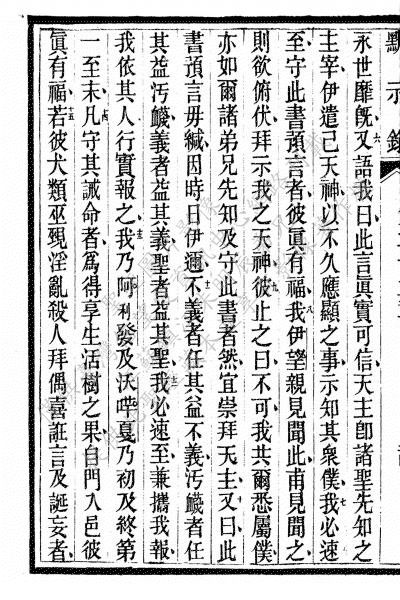 默示錄
永世靡旣又語我曰此言眞實可信天主卽諸聖先知之
主宰伊遣己天神以不久應顯之事示知其衆僕我必速
至守此書預言者彼眞有福我伊望親見聞此甫見聞之
則欲俯伏拜示我之天神彼止之曰不可我共爾悉屬僕
亦如爾諸弟兄先知及守此書者然宜崇拜天主又曰此
書預言毋緘因時日伊邇不義者任其益不義汚衊者任
其益汚衊義者益其義聖者益其聖我必速至兼攜我報
我依其人行實報之我乃阿利發及沃嘩戛乃初及終第
一至末凡守其誡命者爲得享生活樹之果自門入邑彼
眞有福若彼犬類巫覡淫亂殺人拜偶喜誑言及誕妄者